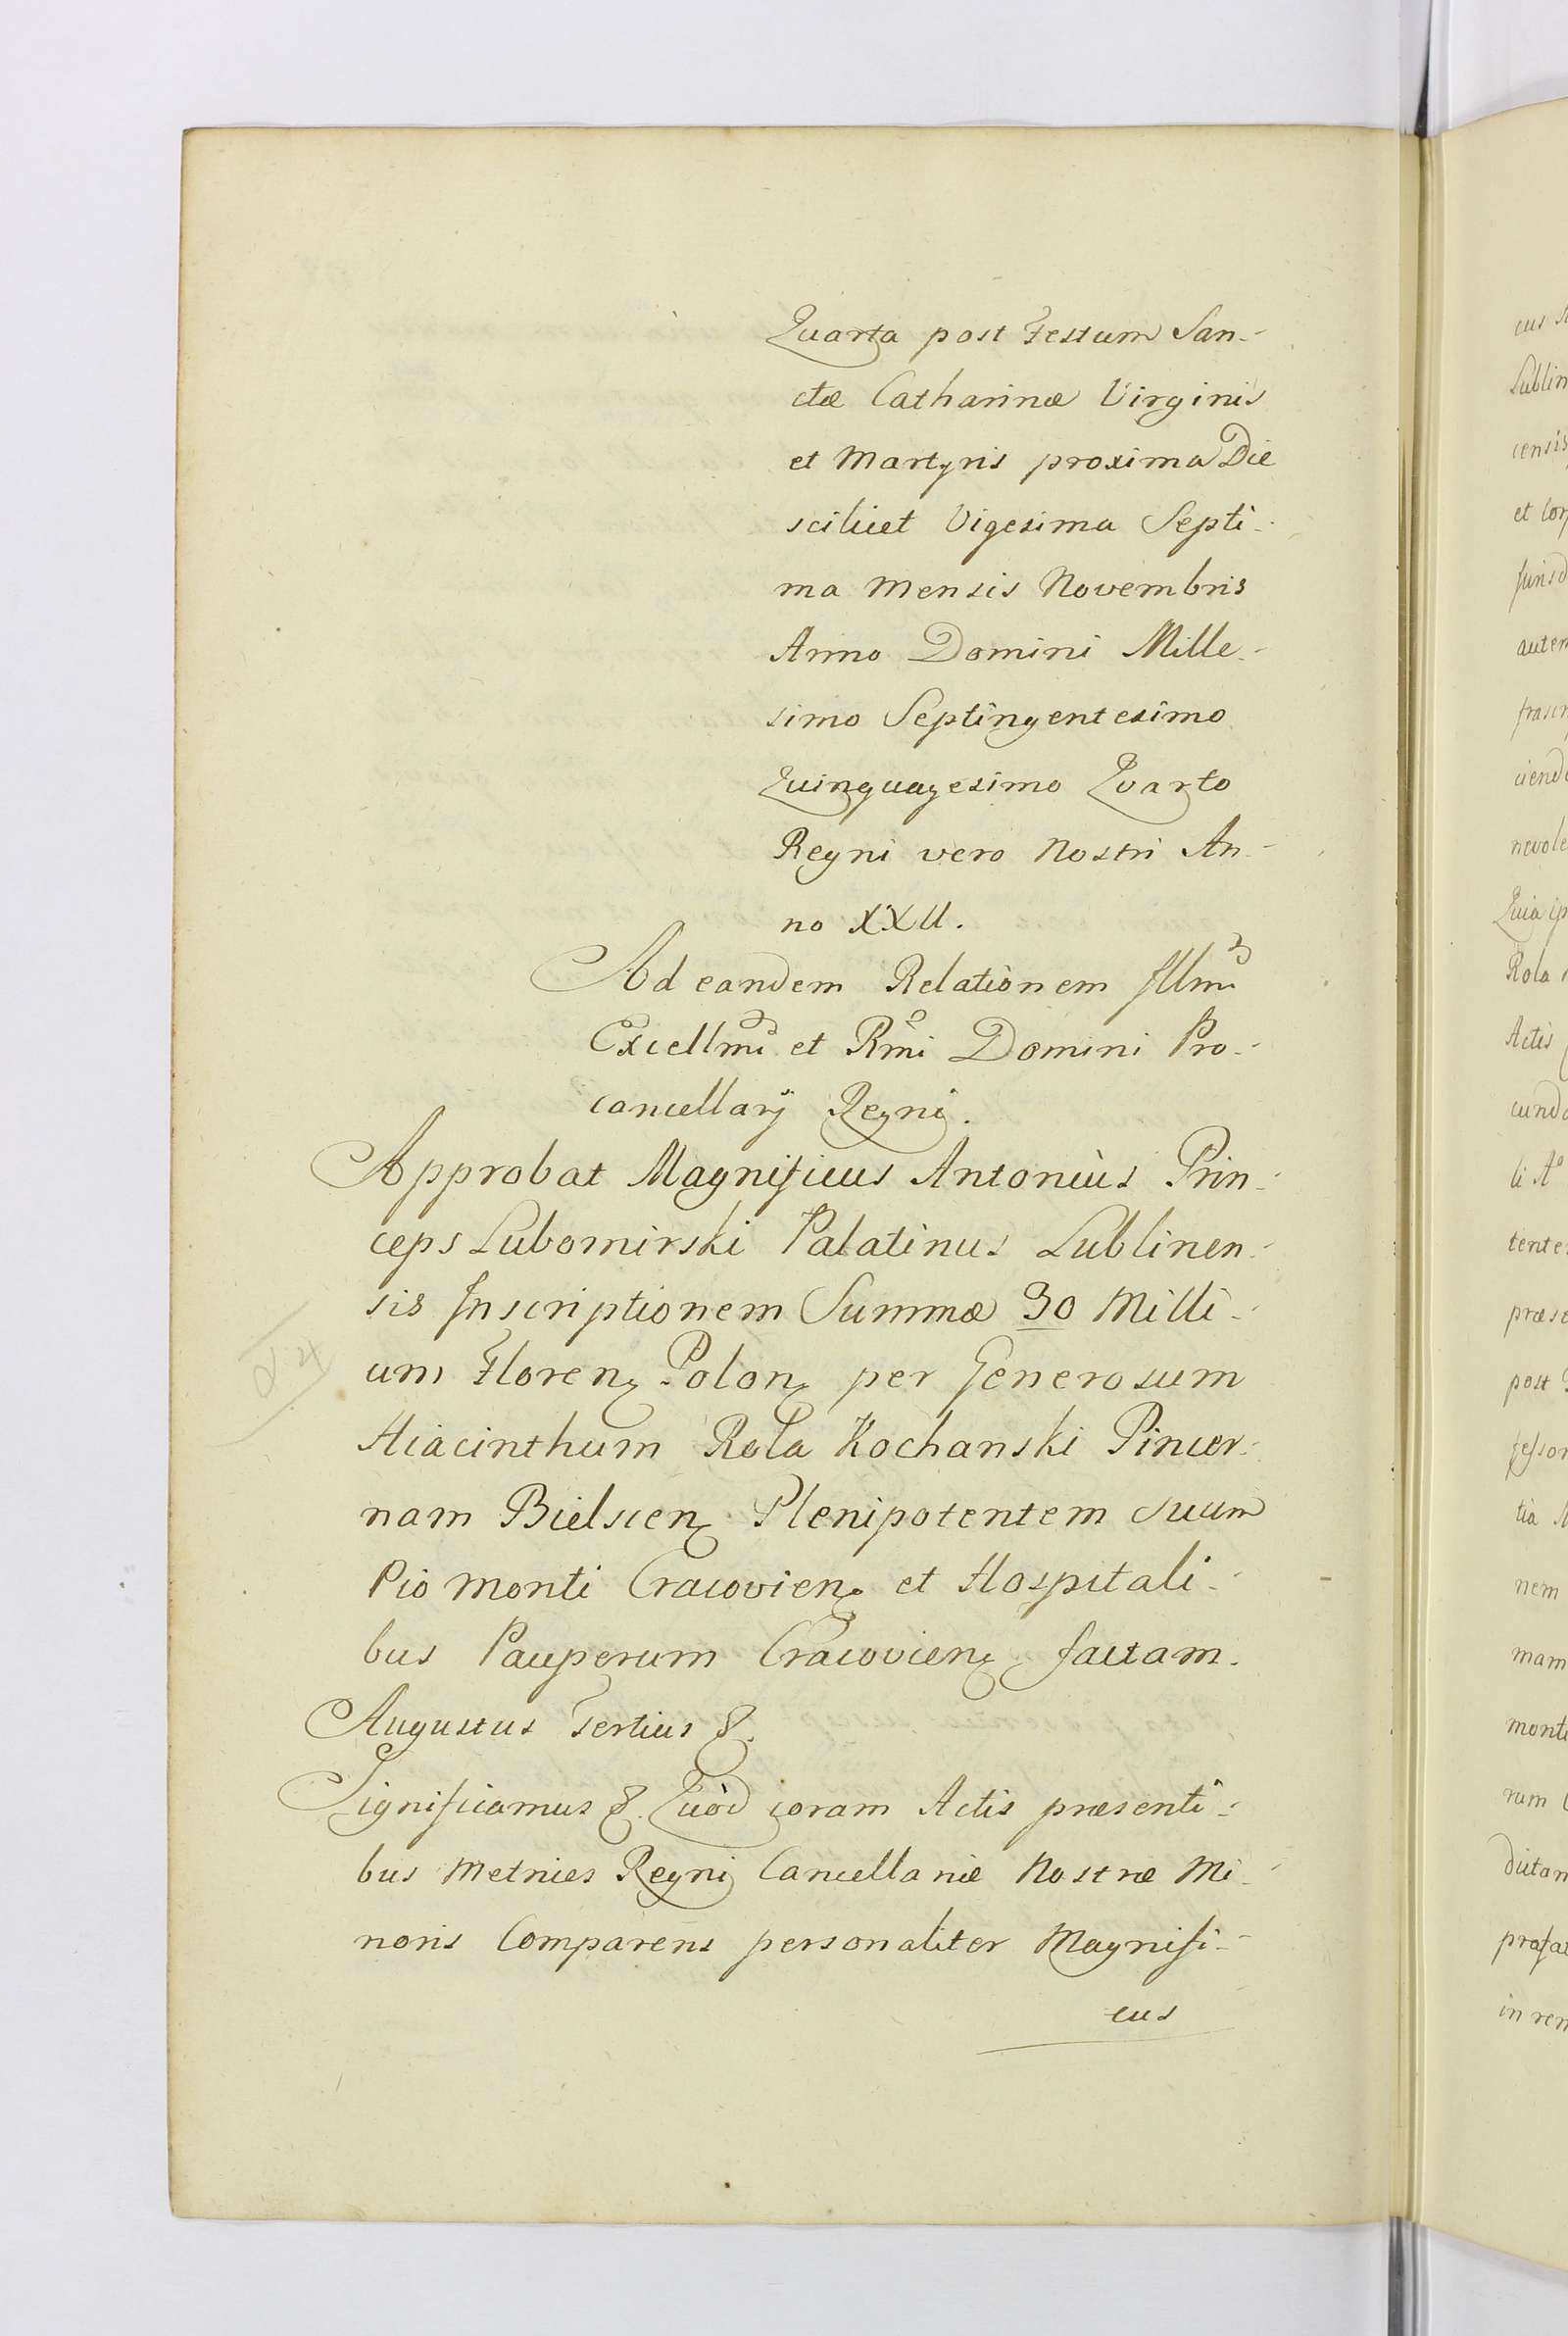 Quarta post Festum San-
ctæ Catharinæ Virginis
et Martyris proxima Die
scilicet Vigesima Septi-
ma Mensis Novembris
Anno Domini Mille-
simo Septingentesimo
Quinquagesimo Quarto
Regni vero Nostri An-
no XXII.
Ad eandem Relationem Illmi
Excellmi et Rmi Domini Pro-
cancellarij Regni.
Approbat Magnificus Antonius Prin-
ceps Lubomirski Palatinus Lublinen-
sis Inscriptionem Summæ 30 Milli-
um Floren. Polon. per Generosum
Hiacinthum Rola Kochanski Pincer-
nam Bielscen. Plenipotentem suum
Pio Monti Cracovien. et Hospitali-
bus Pauperum Cracovien. factam.
Augustus Tertius &.
Significamus &. Quòd coram Actis præsenti-
bus Metrices Regni Cancellariæ Nostræ Mi-
noris Comparens personaliter Magnifi-
cus